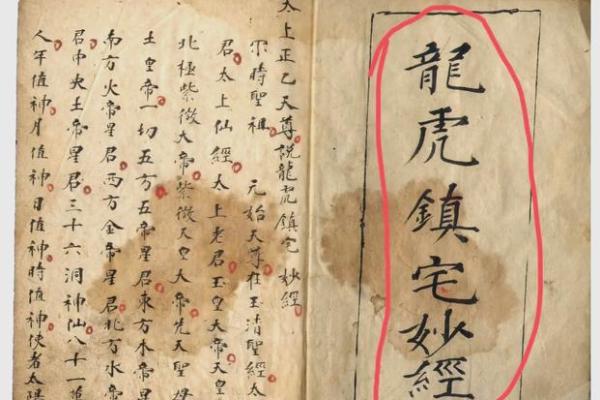 龍虎鎮宅妙經
太上正乙天尊說龍虎鎮宅妙經
尔時聖祖 元始天尊在玉清聖經太
君太上仙經太上老君玉皇大帝天皇
北極紫微大帝紫微天皇大帝先天聖母
土皇帝一切五方五帝星君東方木帝星
南方火帝星君西方金帝星君北方水帝
君中央土帝星君三十六洞神仙八十一萬
人年值神月值神日值神時值神使者太陽